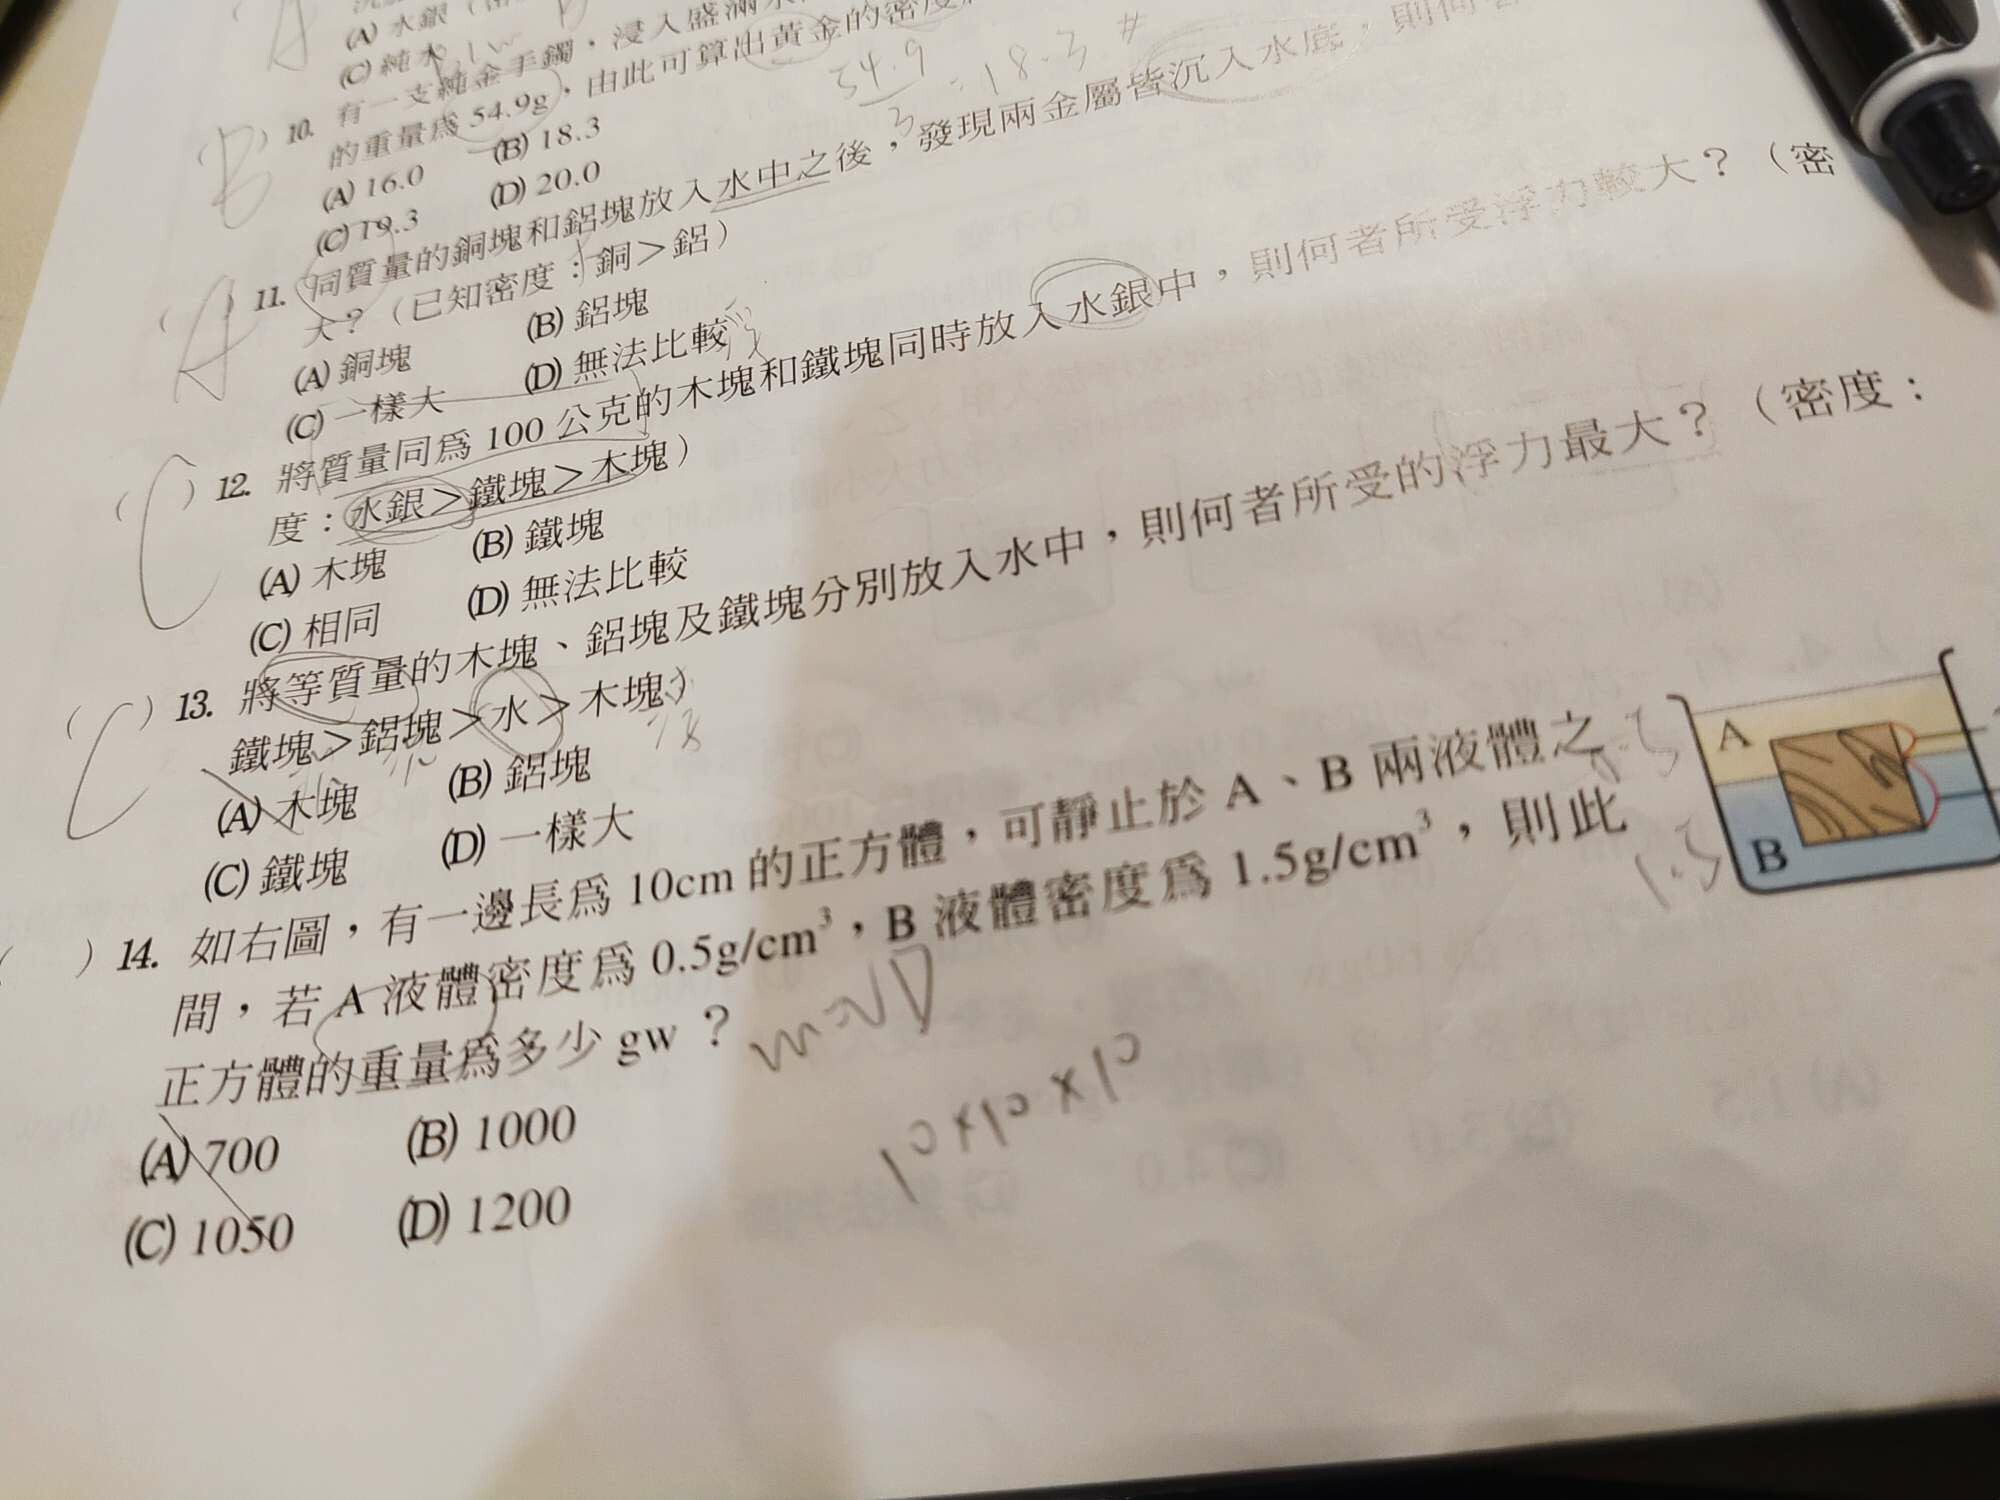 (A) 水銀
(C) 純水
B ) 10. 有一支純金手鐲，浸入盛滿水
的重量為 54.9g，由此可算出黃金的密度
54.9
3
=18.3 #
(A) 16.0 (B) 18.3
(C) 19.3 (D) 20.0
( A ) 11. 同質量的銅塊和鋁塊放入水中之後，發現兩金屬皆沉入水底，則何者
大？（已知密度：銅＞鋁）
(A) 銅塊 (B) 鋁塊
(C) 一樣大 (D) 無法比較
( C ) 12. 將質量同為 100 公克的木塊和鐵塊同時放入水銀中，則何者所受浮力較大？（密
度：水銀＞鐵塊＞木塊）
(A) 木塊 (B) 鐵塊
(C) 相同 (D) 無法比較
( C ) 13. 將等質量的木塊、鋁塊及鐵塊分別放入水中，則何者所受的浮力最大？（密度：
鐵塊＞鋁塊＞水＞木塊）
(A) 木塊 (B) 鋁塊
(C) 鐵塊 (D) 一樣大
( ) 14. 如右圖，有一邊長為 10cm 的正方體，可靜止於 A、B 兩液體之
間，若 A 液體密度為 0.5g/cm³，B 液體密度為 1.5g/cm³，則此
正方體的重量為多少 gw？
(A) 700 (B) 1000
(C) 1050 (D) 1200
A
B
1.5
10×10×10